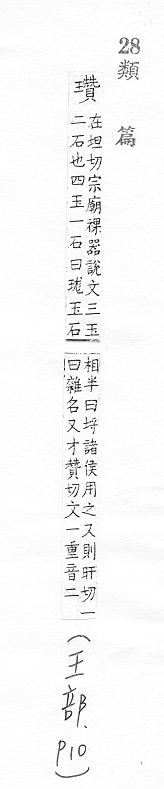 28
類
篇
瓚
在坦切宗廟祼器說文三玉
二石也四玉一石曰珑玉石
相半曰埒諸侯用之又則旰切一
曰雜名又才贊切文一重音二
(玉部、P10)